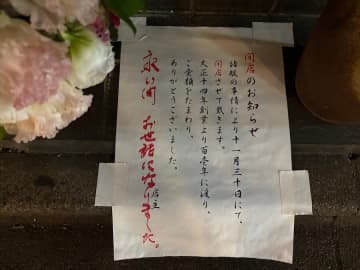 閉店のお知らせ
諸般の事情により十一月三十日にて、
閉店させて戴きます。
大正十四年創業より百壱年に渡り、
ご愛顧をたまわり、
ありがとうございました。
永い間 お世話になりました。
店主